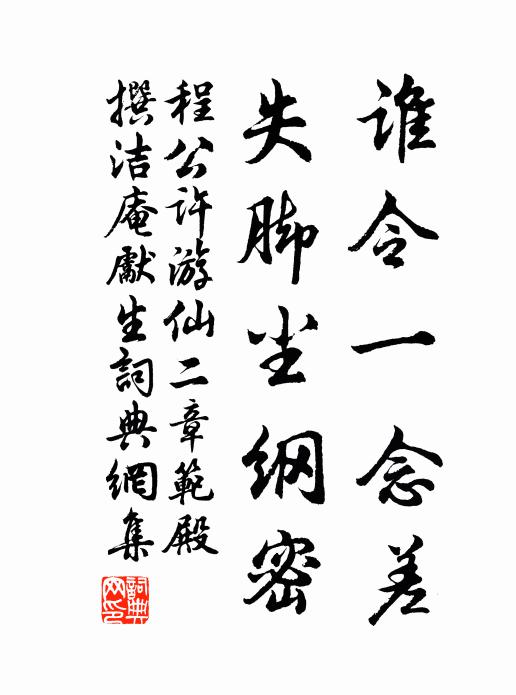 谁令一念差
失脚尘纲密
程公许游仙二章範殿
撰洁庵獻生詞典網集
詞典网印